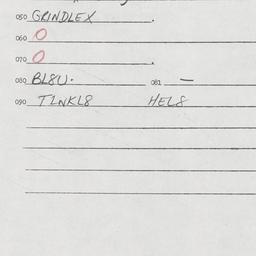 050 GRINDLEX .
060 O
070 O .
080 BL8U. 081 —
090 TLNKL8 HEL8